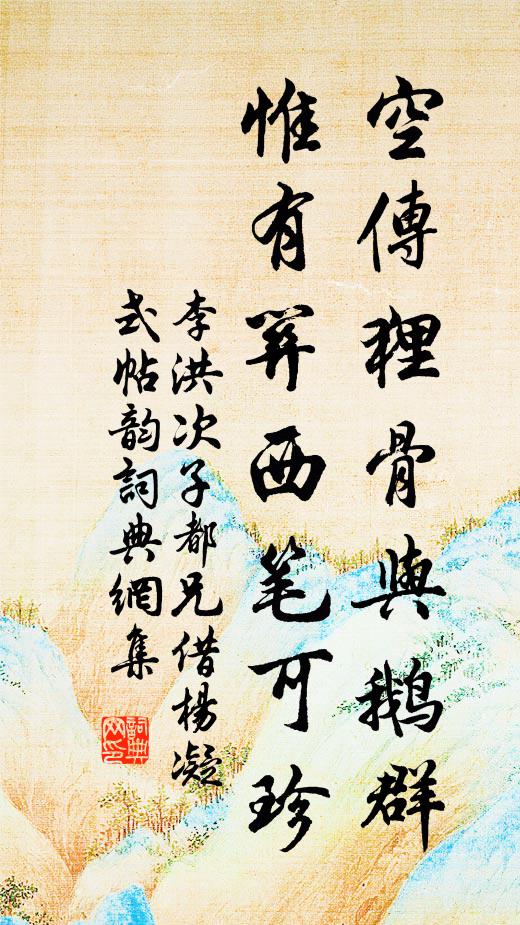 空傳狸骨與鵝群
惟有關西笔可珍
李洪次子都兄借楊凝
式帖韵詞典網集
詞典
网印